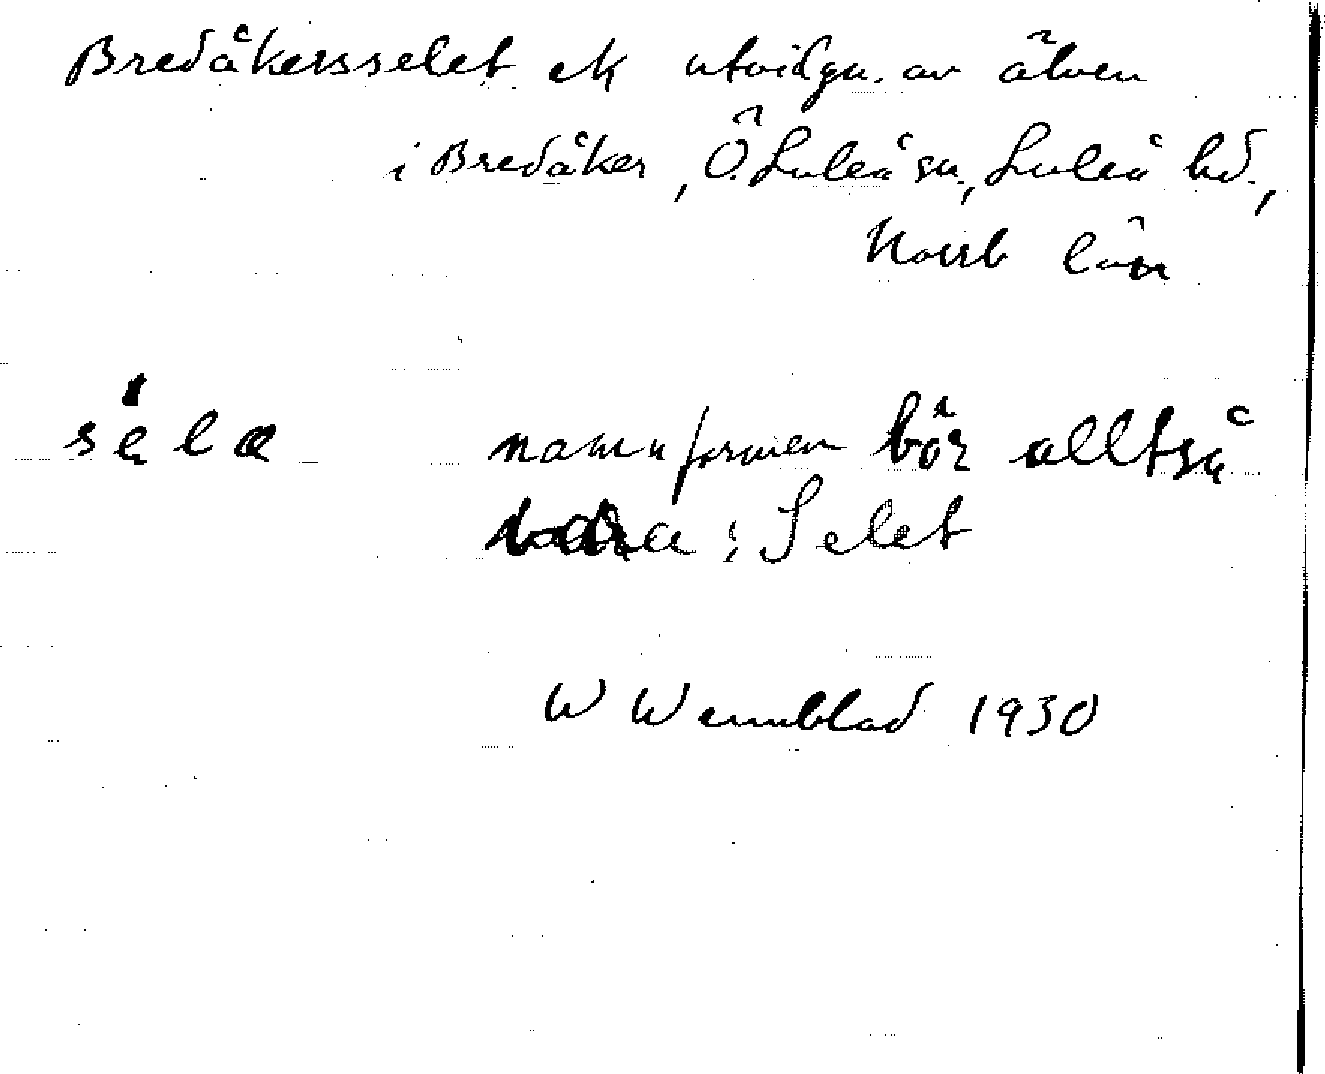 Bredåkersselet ek utvidgn. av älven
i Bredåker, Ö. Luleå sn., Luleå hd.,
Norrb län
sęlæ namnformen bör alltså
vara: Selet
W Wennblad 1930